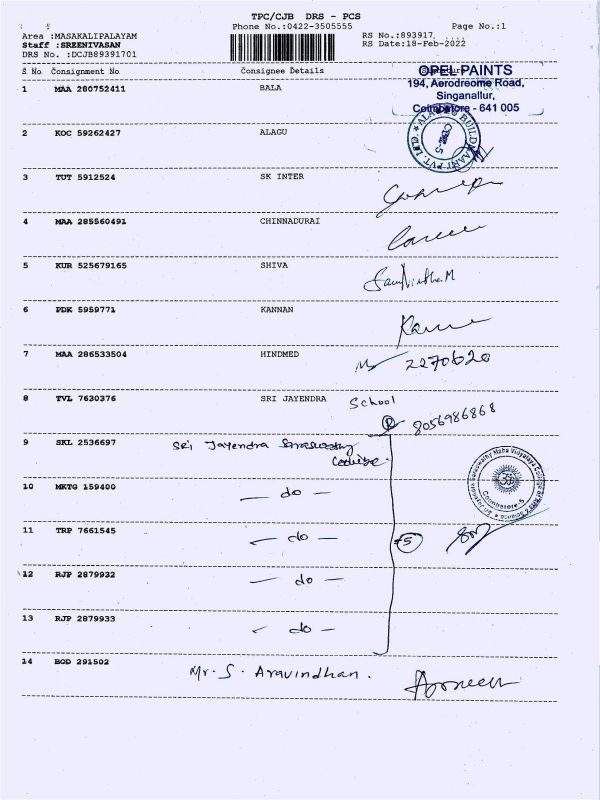 TPC/CJB DRS - PCS
Phone No.:0422-3505555 Page No.:1
Area :MASAKALIPALAYAM RS No:893917
Staff :SREENIVASAN RS Date:18-Feb-2022
DRS No. :DCJB89391701
S No Consignment No Consignee Details
OPEL PAINTS
194, Aerodreome Road,
Singanallur,
Coimbatore - 641 005
1 MAA 280752411 BALA
2 KOC 59262427 ALAGU
3 TUT 5912524 SK INTER
4 MAA 285560491 CHINNADURAI
5 KUR 525679165 SHIVA
6 PDK 5959771 KANNAN
7 MAA 286533504 HINDMED 2270620
8 TVL 7630376 SRI JAYENDRA School
8056986868
9 SKL 2536697 Sri Jayendra Saraswathy
College.
10 MKTG 159400 — do —
11 TRP 7661545 — do — 5
12 RJP 2879932 — do —
13 RJP 2879933 — do —
Coimbatore-5
14 BOD 291502 Mr. S. Aravindhan.